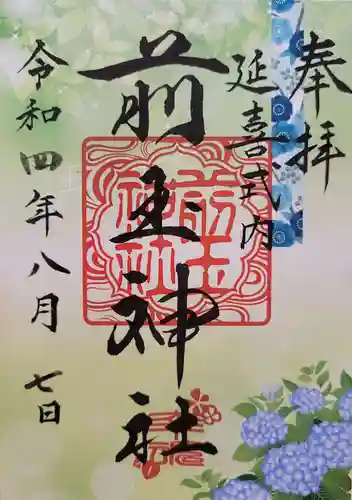 奉拝
延喜式内
前玉神社
前玉神社
令和四年八月七日